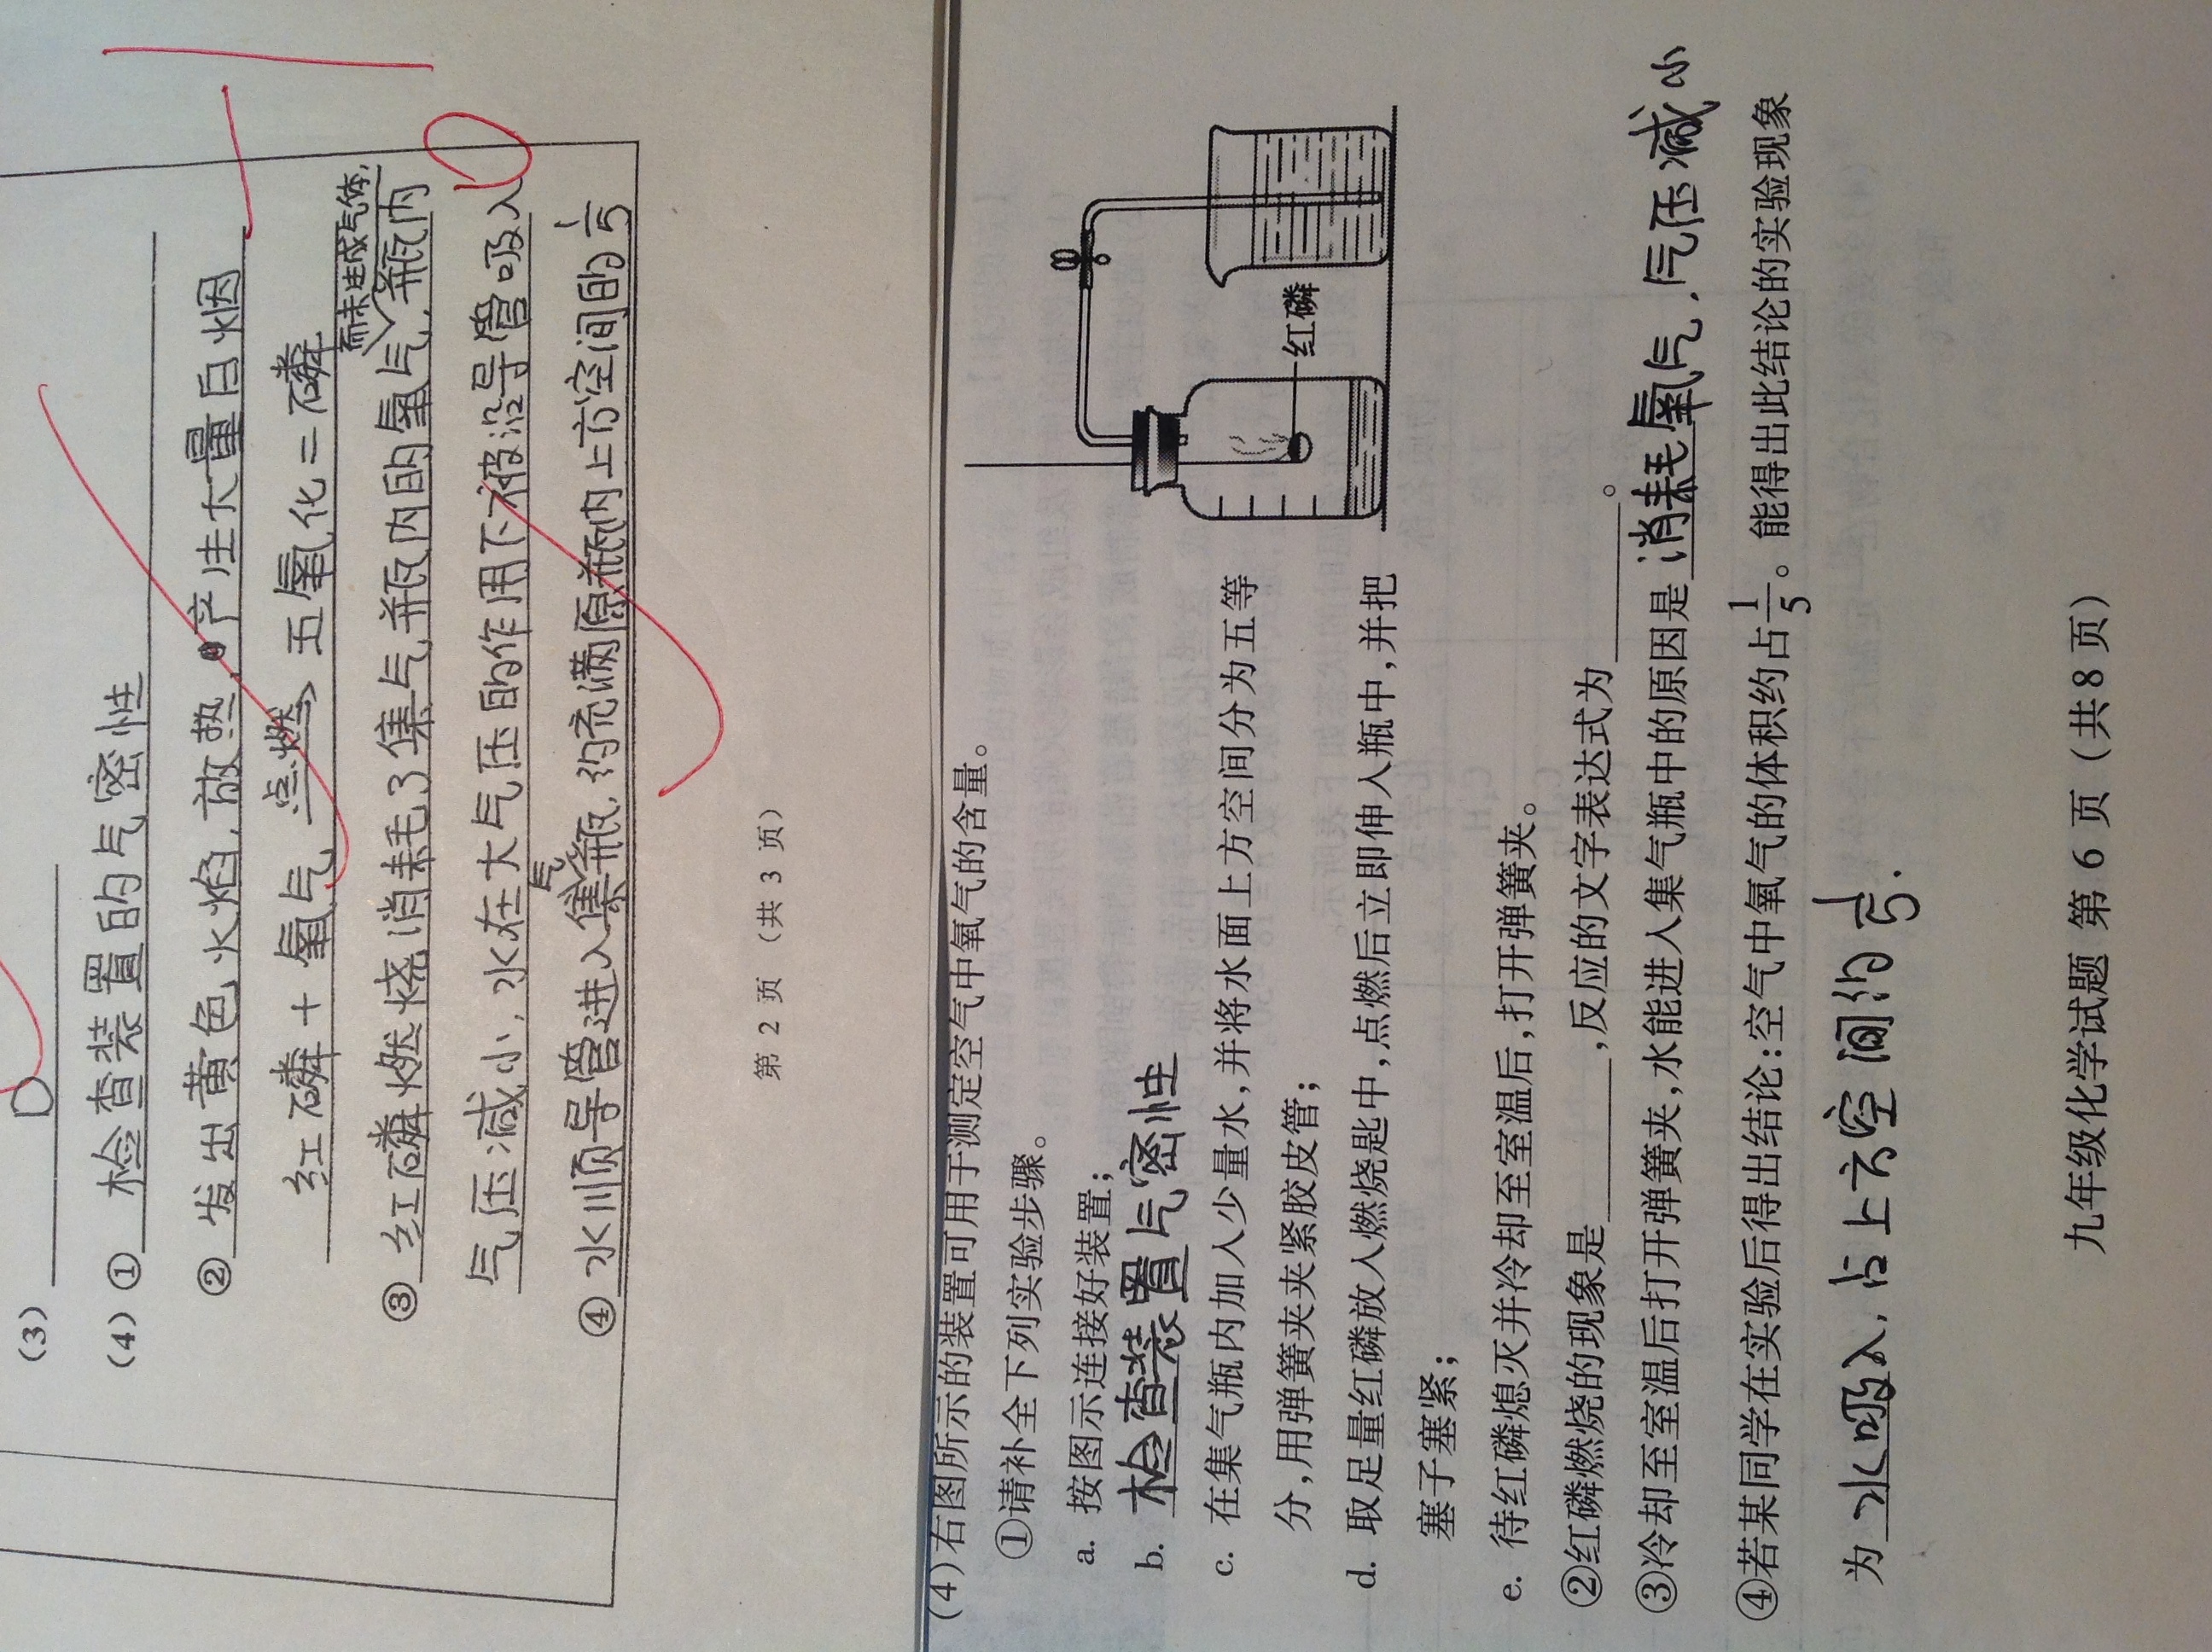 (3) D
(4) ① 检查装置的气密性
② 发出黄色火焰,放热,产生大量白烟
红磷 + 氧气 点燃→ 五氧化二磷
而未生成气体,
③ 红磷燃烧消耗了集气瓶内的氧气,瓶内
气压减小,水在大气压的作用下被沿导管吸入
气
④ 水顺导管进入集瓶,约充满原瓶内上方空间的1/5
第 2 页 (共 3 页)
(4)右图所示的装置可用于测定空气中氧气的含量。
①请补全下列实验步骤。
a. 按图示连接好装置;
b. 检查装置气密性
c. 在集气瓶内加入少量水,并将水面上方空间分为五等
分,用弹簧夹夹紧胶皮管;
红磷
d. 取足量红磷放入燃烧匙中,点燃后立即伸入瓶中,并把
塞子塞紧;
e. 待红磷熄灭并冷却至室温后,打开弹簧夹。
②红磷燃烧的现象是________,反应的文字表达式为________。
③冷却至室温后打开弹簧夹,水能进入集气瓶中的原因是 消耗氧气,气压减小
④若某同学在实验后得出结论:空气中氧气的体积约占1/5。能得出此结论的实验现象
为 水吸入,占上方空间约1/5.
九年级化学试题 第 6 页 (共8 页)